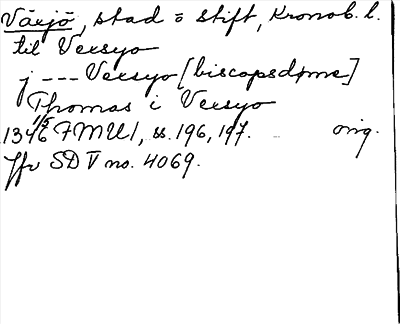 Växjö, stad o stift, Kronob. l.
til Versyo
j --- Versyo [biscopsdøme]
Thomas i Versyo
1346 1/5 FMU I, ss. 196, 197. orig.
Jfr SD V no. 4069.